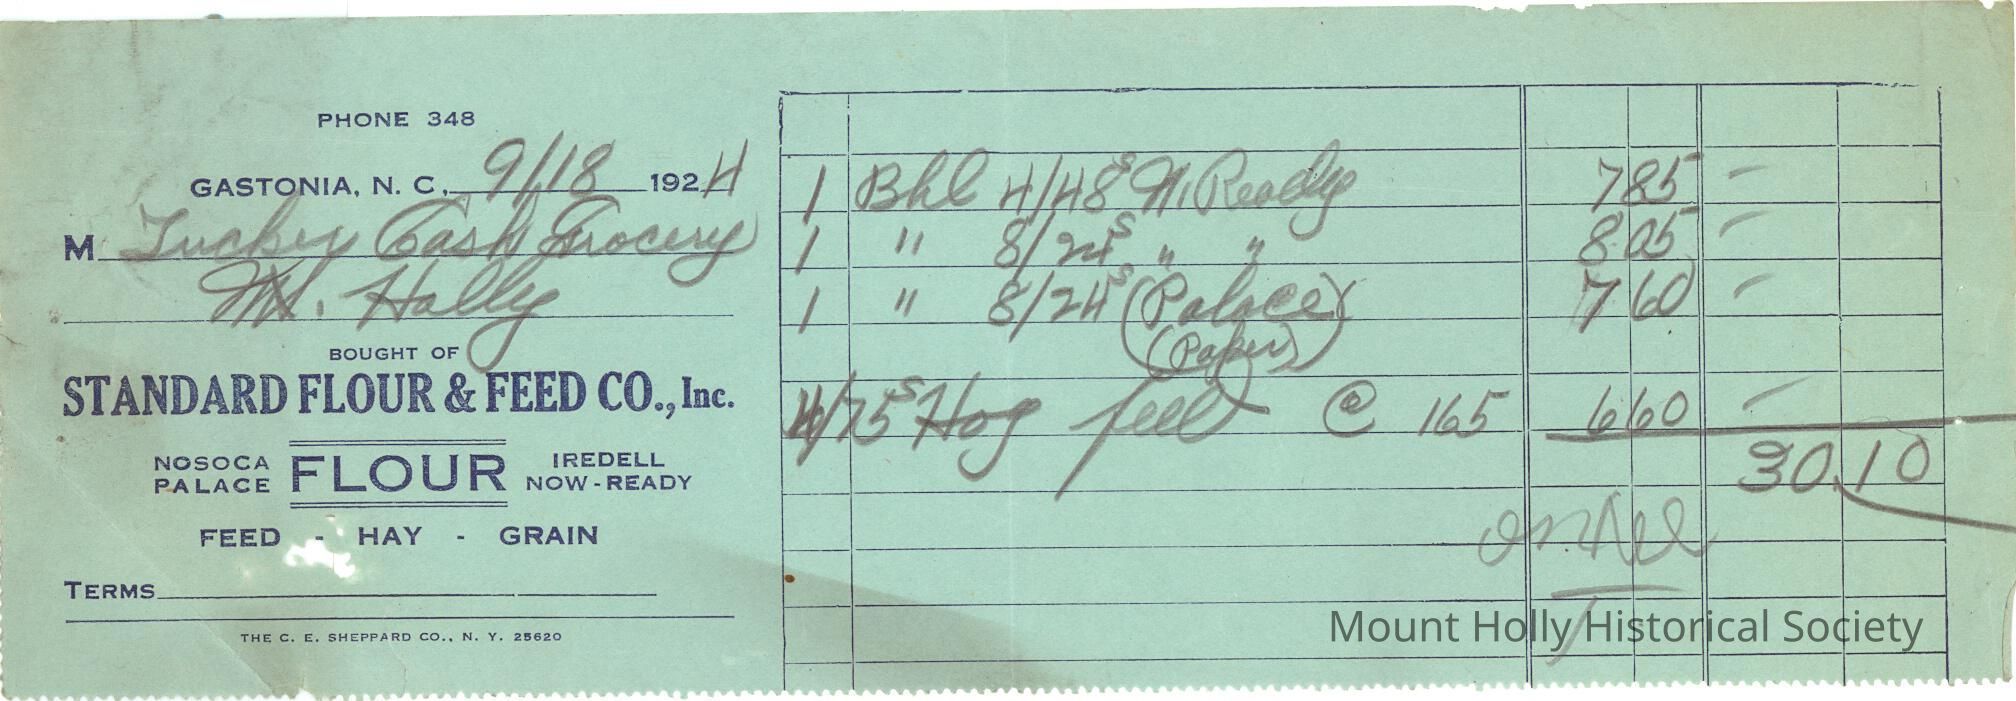 PHONE 348
GASTONIA, N. C., 9/18 1924
M Tucker Cash Grocery
Mt. Holly
BOUGHT OF
STANDARD FLOUR & FEED CO., Inc.
NOSOCA PALACE FLOUR IREDELL NOW-READY
FEED - HAY - GRAIN
TERMS
THE C. E. SHEPPARD CO., N. Y. 25620
1 Bbl 4/48s N. Ready 785 -
1 " 8/24s " " 805 -
1 " 8/24s (Palace) 760 -
(Paper)
4/75s Hog feed @ 165 660 -
30.10
Mount Holly Historical Society